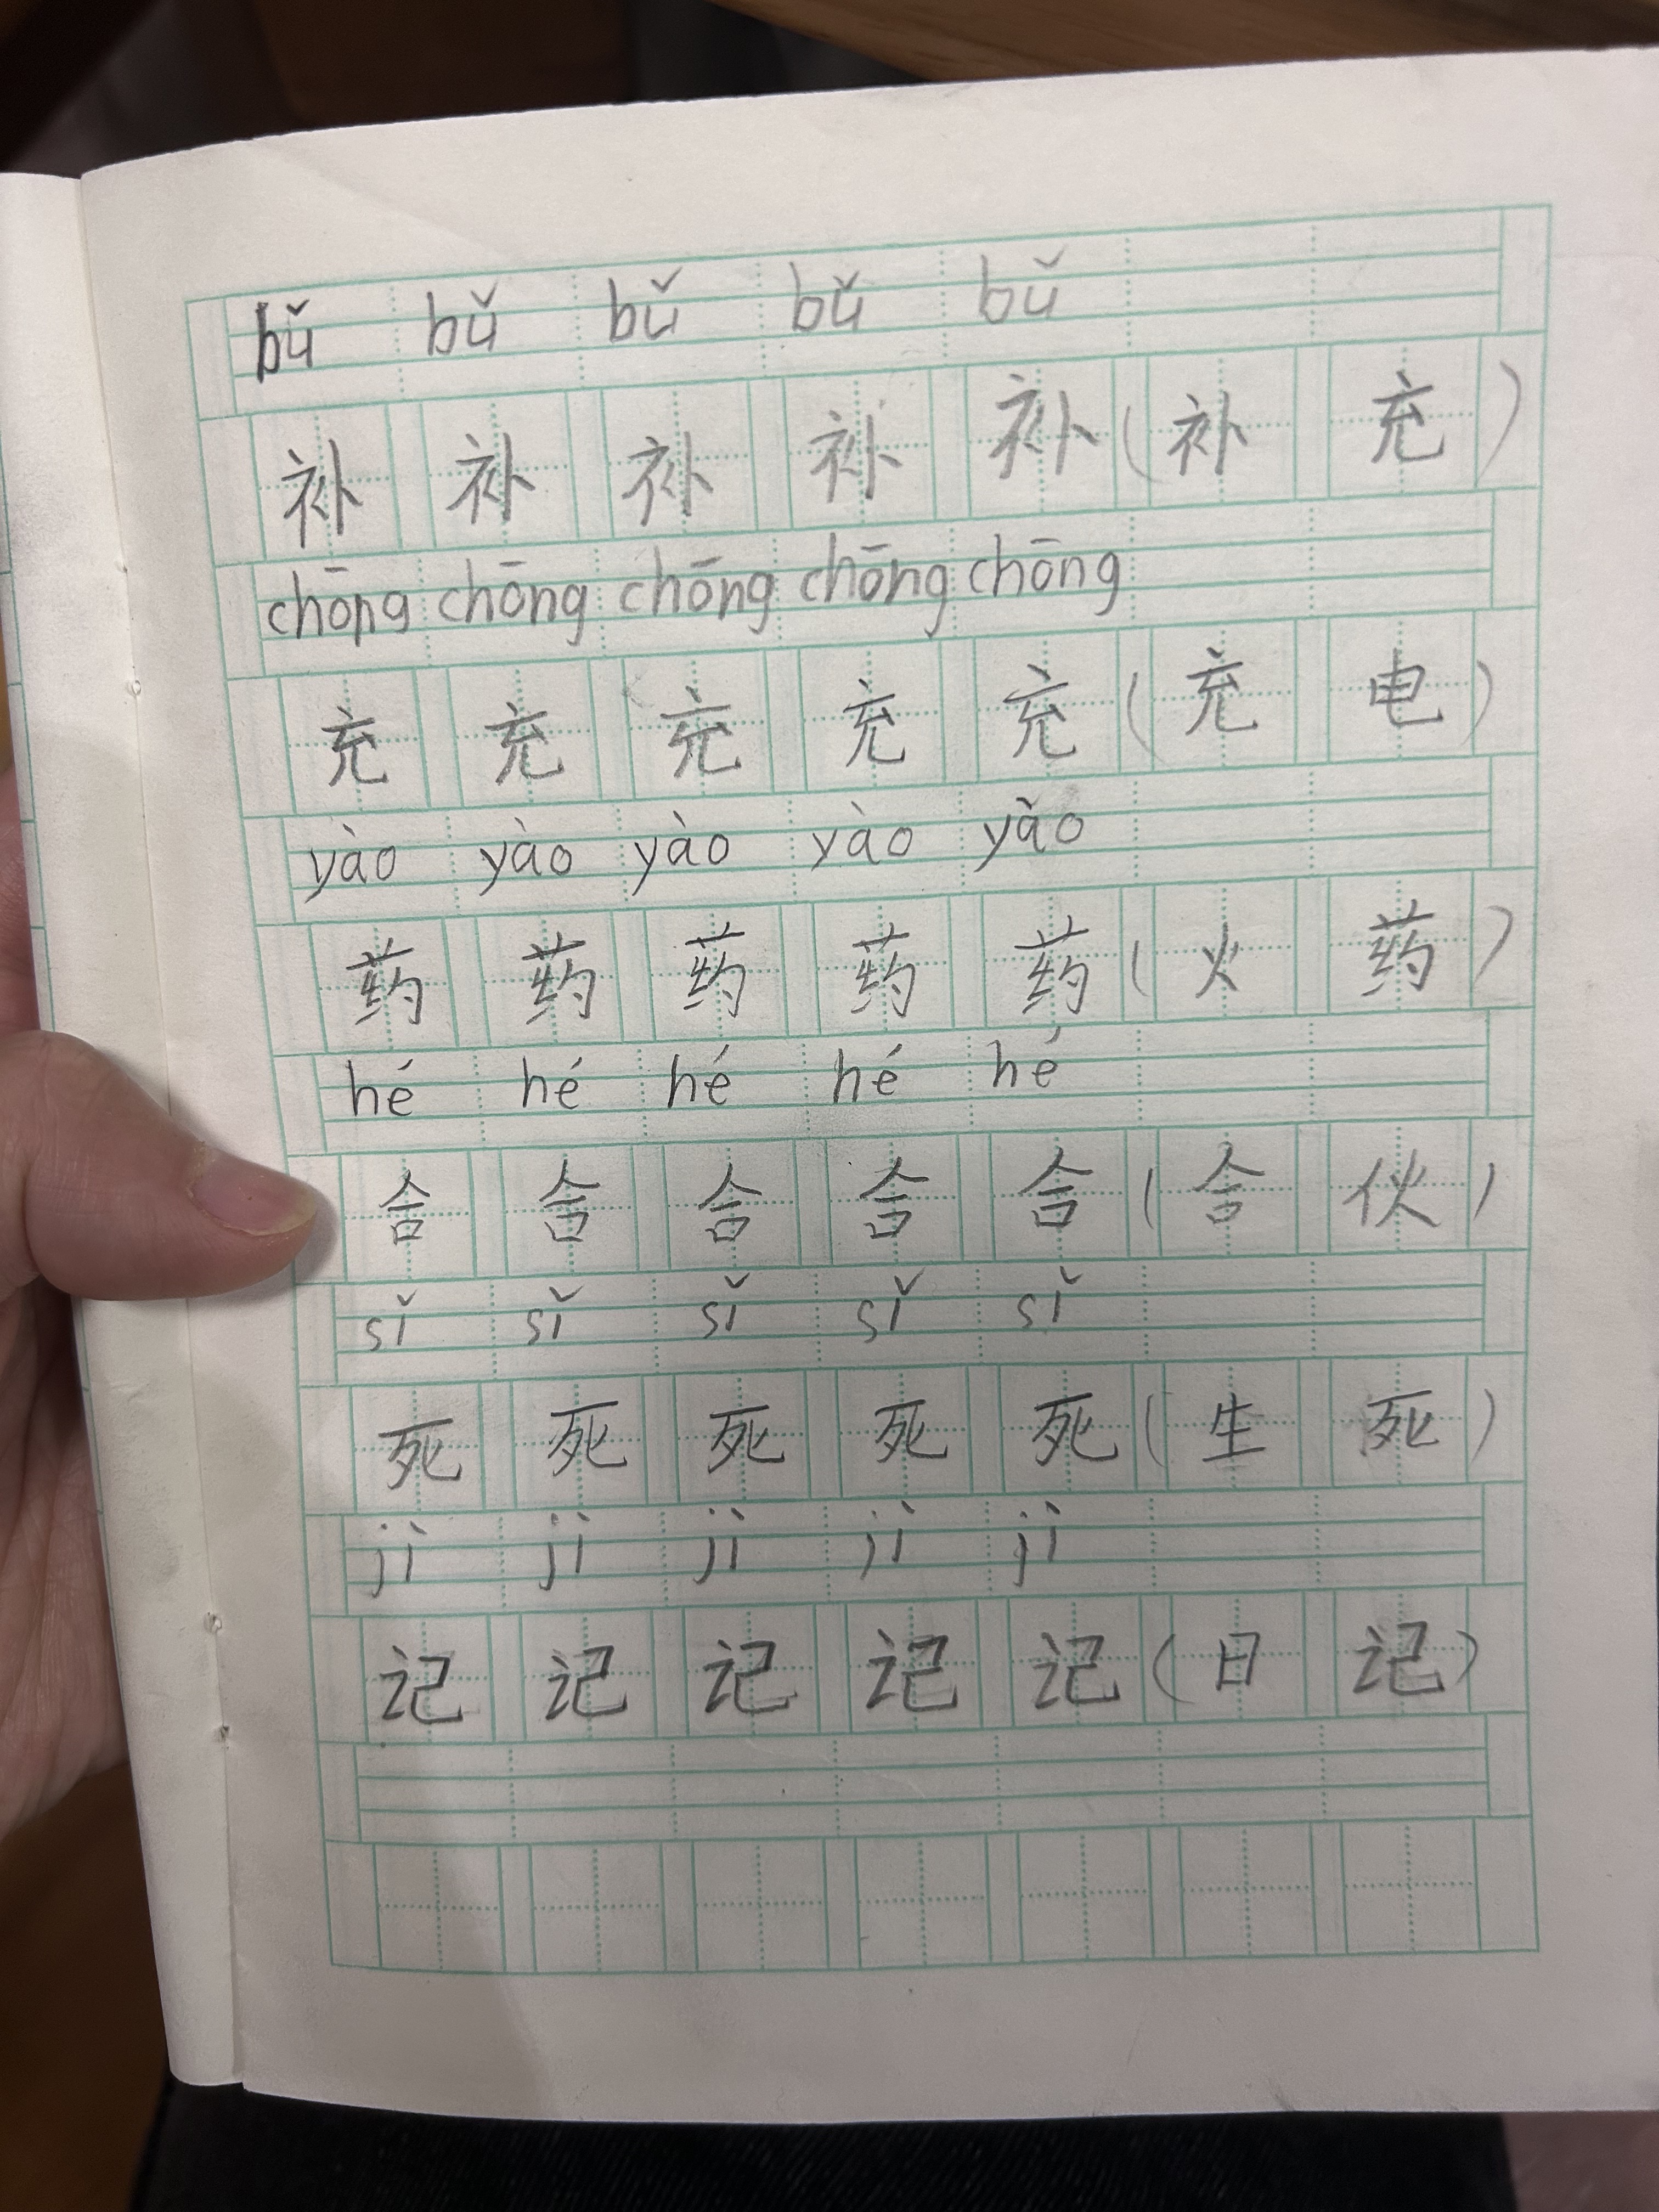 bǔ bǔ bǔ bǔ bǔ
补 补 补 补 补 ( 补 充 )
chōng chōng chōng chōng chōng
充 充 充 充 充 ( 充 电 )
yào yào yào yào yào
药 药 药 药 药 ( 火 药 )
hé hé hé hé hé
合 合 合 合 合 ( 合 伙 )
sǐ sǐ sǐ sǐ sǐ
死 死 死 死 死 ( 生 死 )
jì jì jì jì jì
记 记 记 记 记 ( 日 记 )